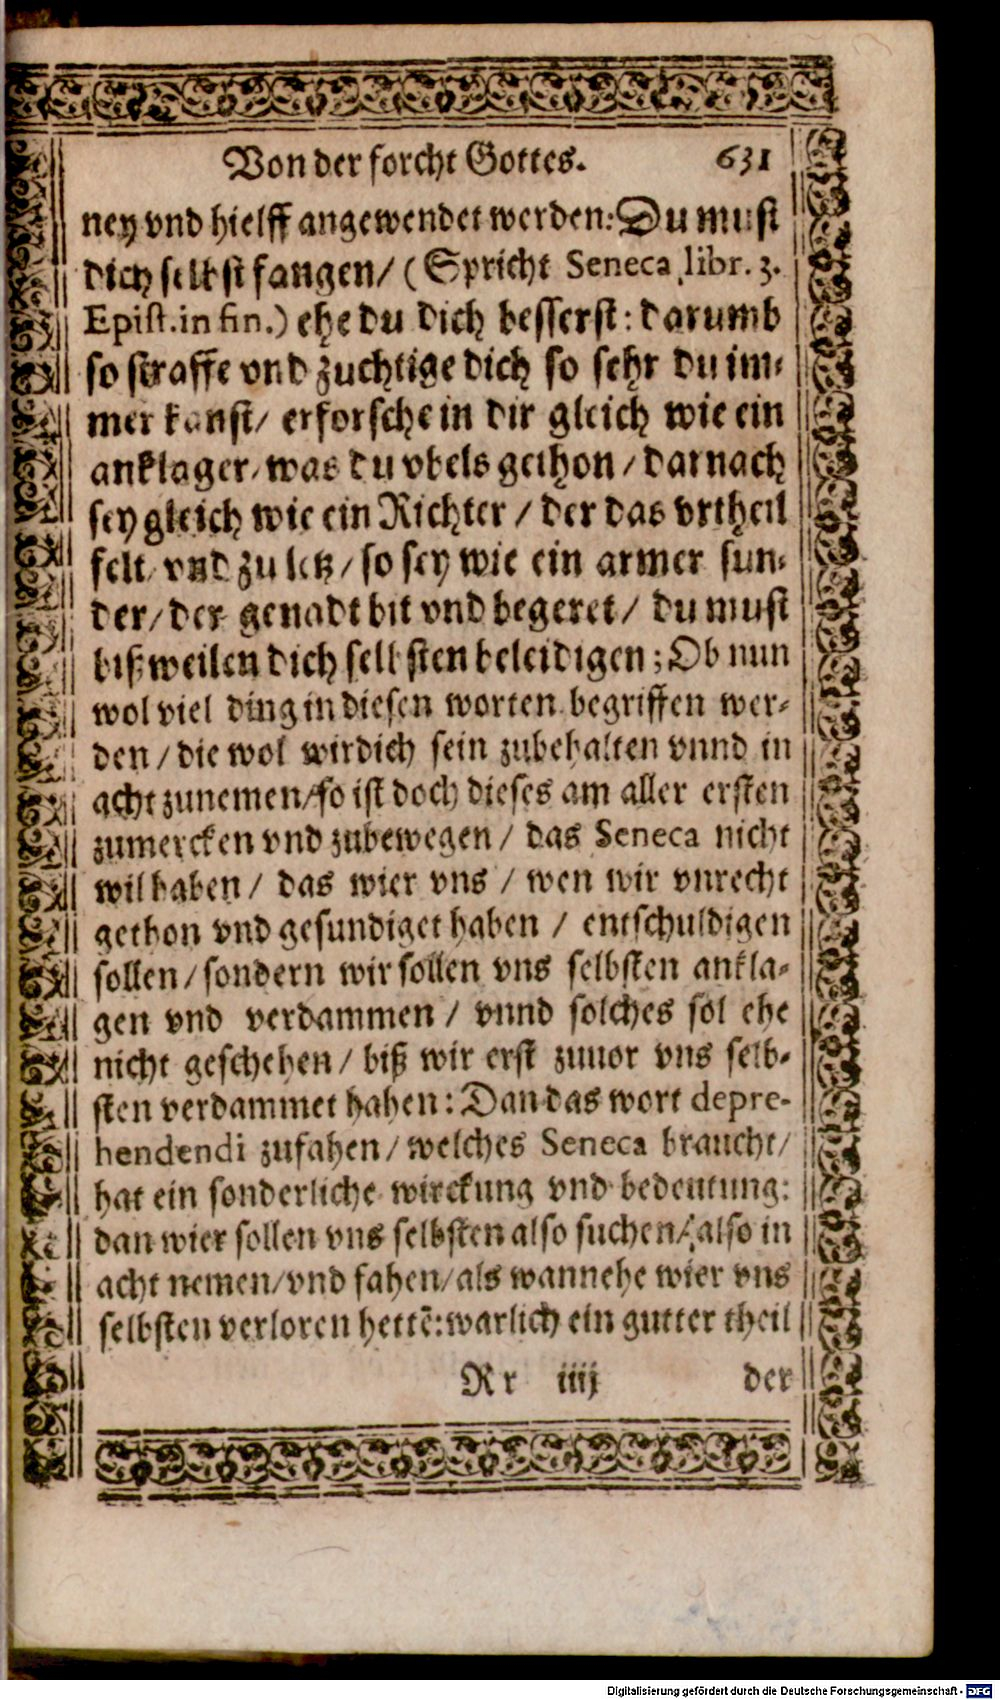 Von der forcht Gottes. 631
ney vnd hielff angewendet werden: Du must
dich selbst fangen/ (Spricht Seneca libr. 3.
Epist. in fin.) ehe du dich besserst: darumb
so straffe vnd zuchtige dich so sehr du im-
mer kanst/ erforsche in dir gleich wie ein
anklager/ was du vbels gethon/ darnach
sey gleich wie ein Richter/ der das vrtheil
felt/ vnd zu letz/ so sey wie ein armer sun-
der/ der genadt bit vnd begeret/ du must
bißweilen dich selbsten beleidigen; Ob nun
wol viel ding in diesen worten begriffen wer-
den/ die wol wirdich sein zubehalten vnnd in
acht zunemen/ so ist doch dieses am aller ersten
zumercken vnd zubewegen/ das Seneca nicht
wil haben/ das wier vns/ wen wir vnrecht
gethon vnd gesundiget haben/ entschuldigen
sollen/ sondern wir sollen vns selbsten ankla-
gen vnd verdammen/ vnnd solches sol ehe
nicht geschehen/ biß wir erst zuuor vns selb-
sten verdammet haben: Dan das wort depre-
hendendi zufahen/ welches Seneca braucht/
hat ein sonderliche wirckung vnd bedeutung:
dan wier sollen vns selbsten also suchen/ also in
acht nemen/ vnd fahen/ als wannehe wier vns
selbsten verloren hettē: warlich ein gutter theil
Rr iiij der
Digitalisierung gefördert durch die Deutsche Forschungsgemeinschaft - DFG